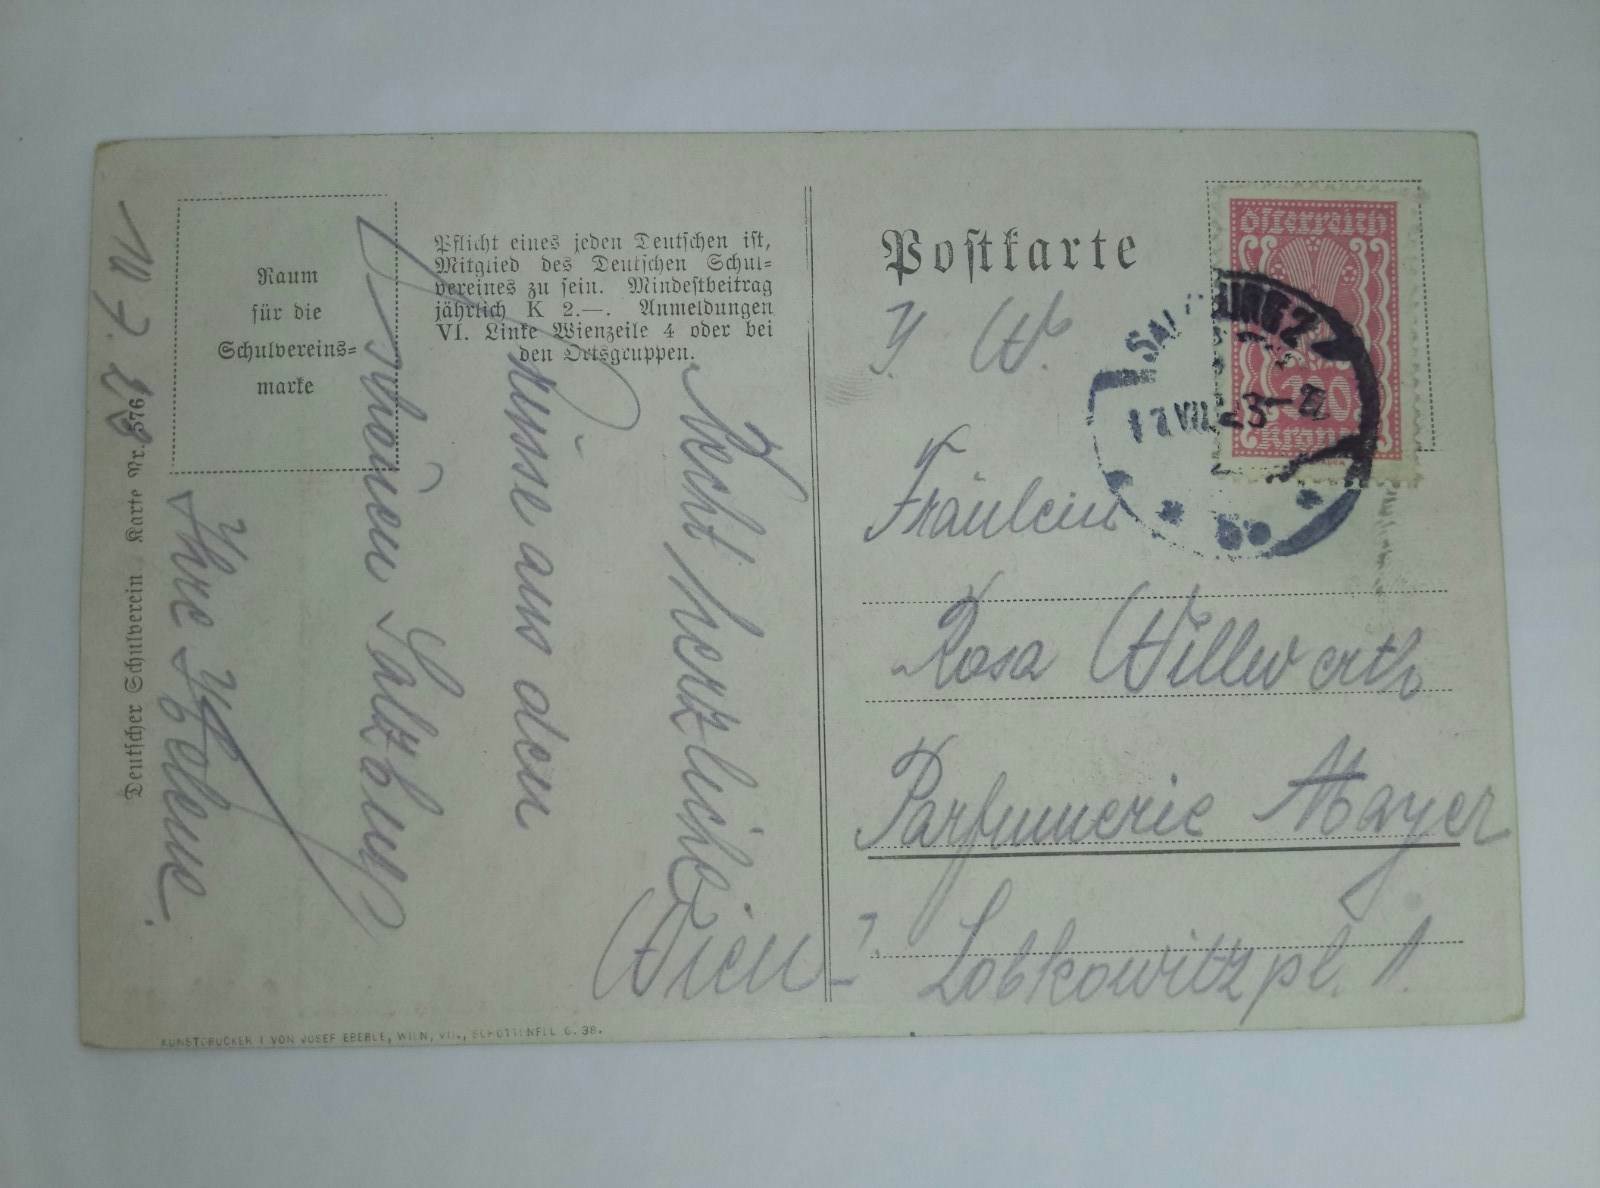 Raum
für die
Schulvereins=
marke
Pflicht eines jeden Deutschen ist,
Mitglied des Deutschen Schul=
vereines zu sein. Mindestbeitrag
jährlich K 2.—. Anmeldungen
VI. Linke Wienzeile 4 oder bei
den Ortsgruppen.
Deutscher Schulverein Karte Nr. 376
Recht herzliche
Grüsse aus dem
schönen Salzburg
Ihre Helene.
KUNSTDRUCKEREI VON JOSEF EBERLE, WIEN, VII., SCHOTTENFELDG. 38.
Postkarte
Österreich
Kronen
SALZBURG 2
Fräulein
Rosa Willwerth
Parfumerie Mayer
Wien - 7. Lobkowitzpl. 1.